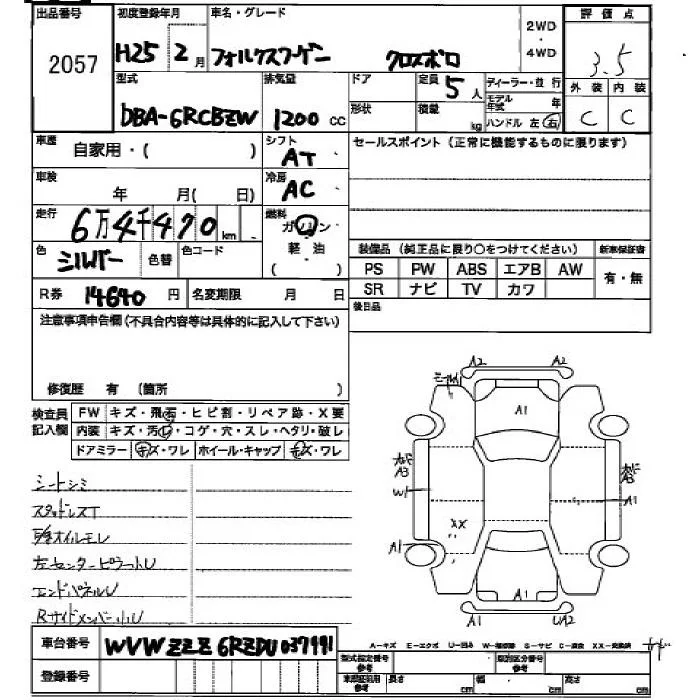 出品番号 初度登録年月 車名・グレード 2WD ・ 4WD 評価点
2057 H25 2月 フォルクスワーゲン クロスポロ 3.5
型式 排気量 ドア 定員 5人 ディーラー・並行 外装 内装
DBA-6RCBZW 1200cc 形状 積載 kg モデル年式 年 C C
ハンドル 左 右
車歴 自家用・( ) シフト AT セールスポイント(正常に機能するものに限ります)
車検 年 月(日) 冷房 AC
走行 6万4千470km 燃料 ガソリン
色 シルバー 色替 色コード 軽・油 ( ) 装備品(純正品に限り○をつけてください) 新車保証書
PS PW ABS エアB AW 有・無
SR ナビ TV カワ
R券 14640円 名変期限 月 日 後日品
注意事項申告欄(不具合内容等は具体的に記入して下さい)
修復歴 有 (箇所 )
検査員記入欄 FW キズ・飛石・ヒビ割・リペア跡・X要
内装 キズ・汚レ・コゲ・穴・スレ・ヘタリ・破レ
ドアミラー キズ・ワレ ホイール・キャップ キズ・ワレ
シートシミ
スタッドレスT
オイルモレ
左センターピラー小U
エンドパネルU
Rサイドメンバー小U
A2 A2
A1
A3 A3
W1 A1
XX
A1
A1
A1 UA2
車台番号 WVWZZZ6RZDU037991
登録番号
A-キズ E-エクボ U-凹み W-補修跡 S-サビ C-腐食 XX-交換済
型式指定番号 参考 類別区分番号 参考
車検証記載用 参考 長さ cm 幅 cm 高さ cm